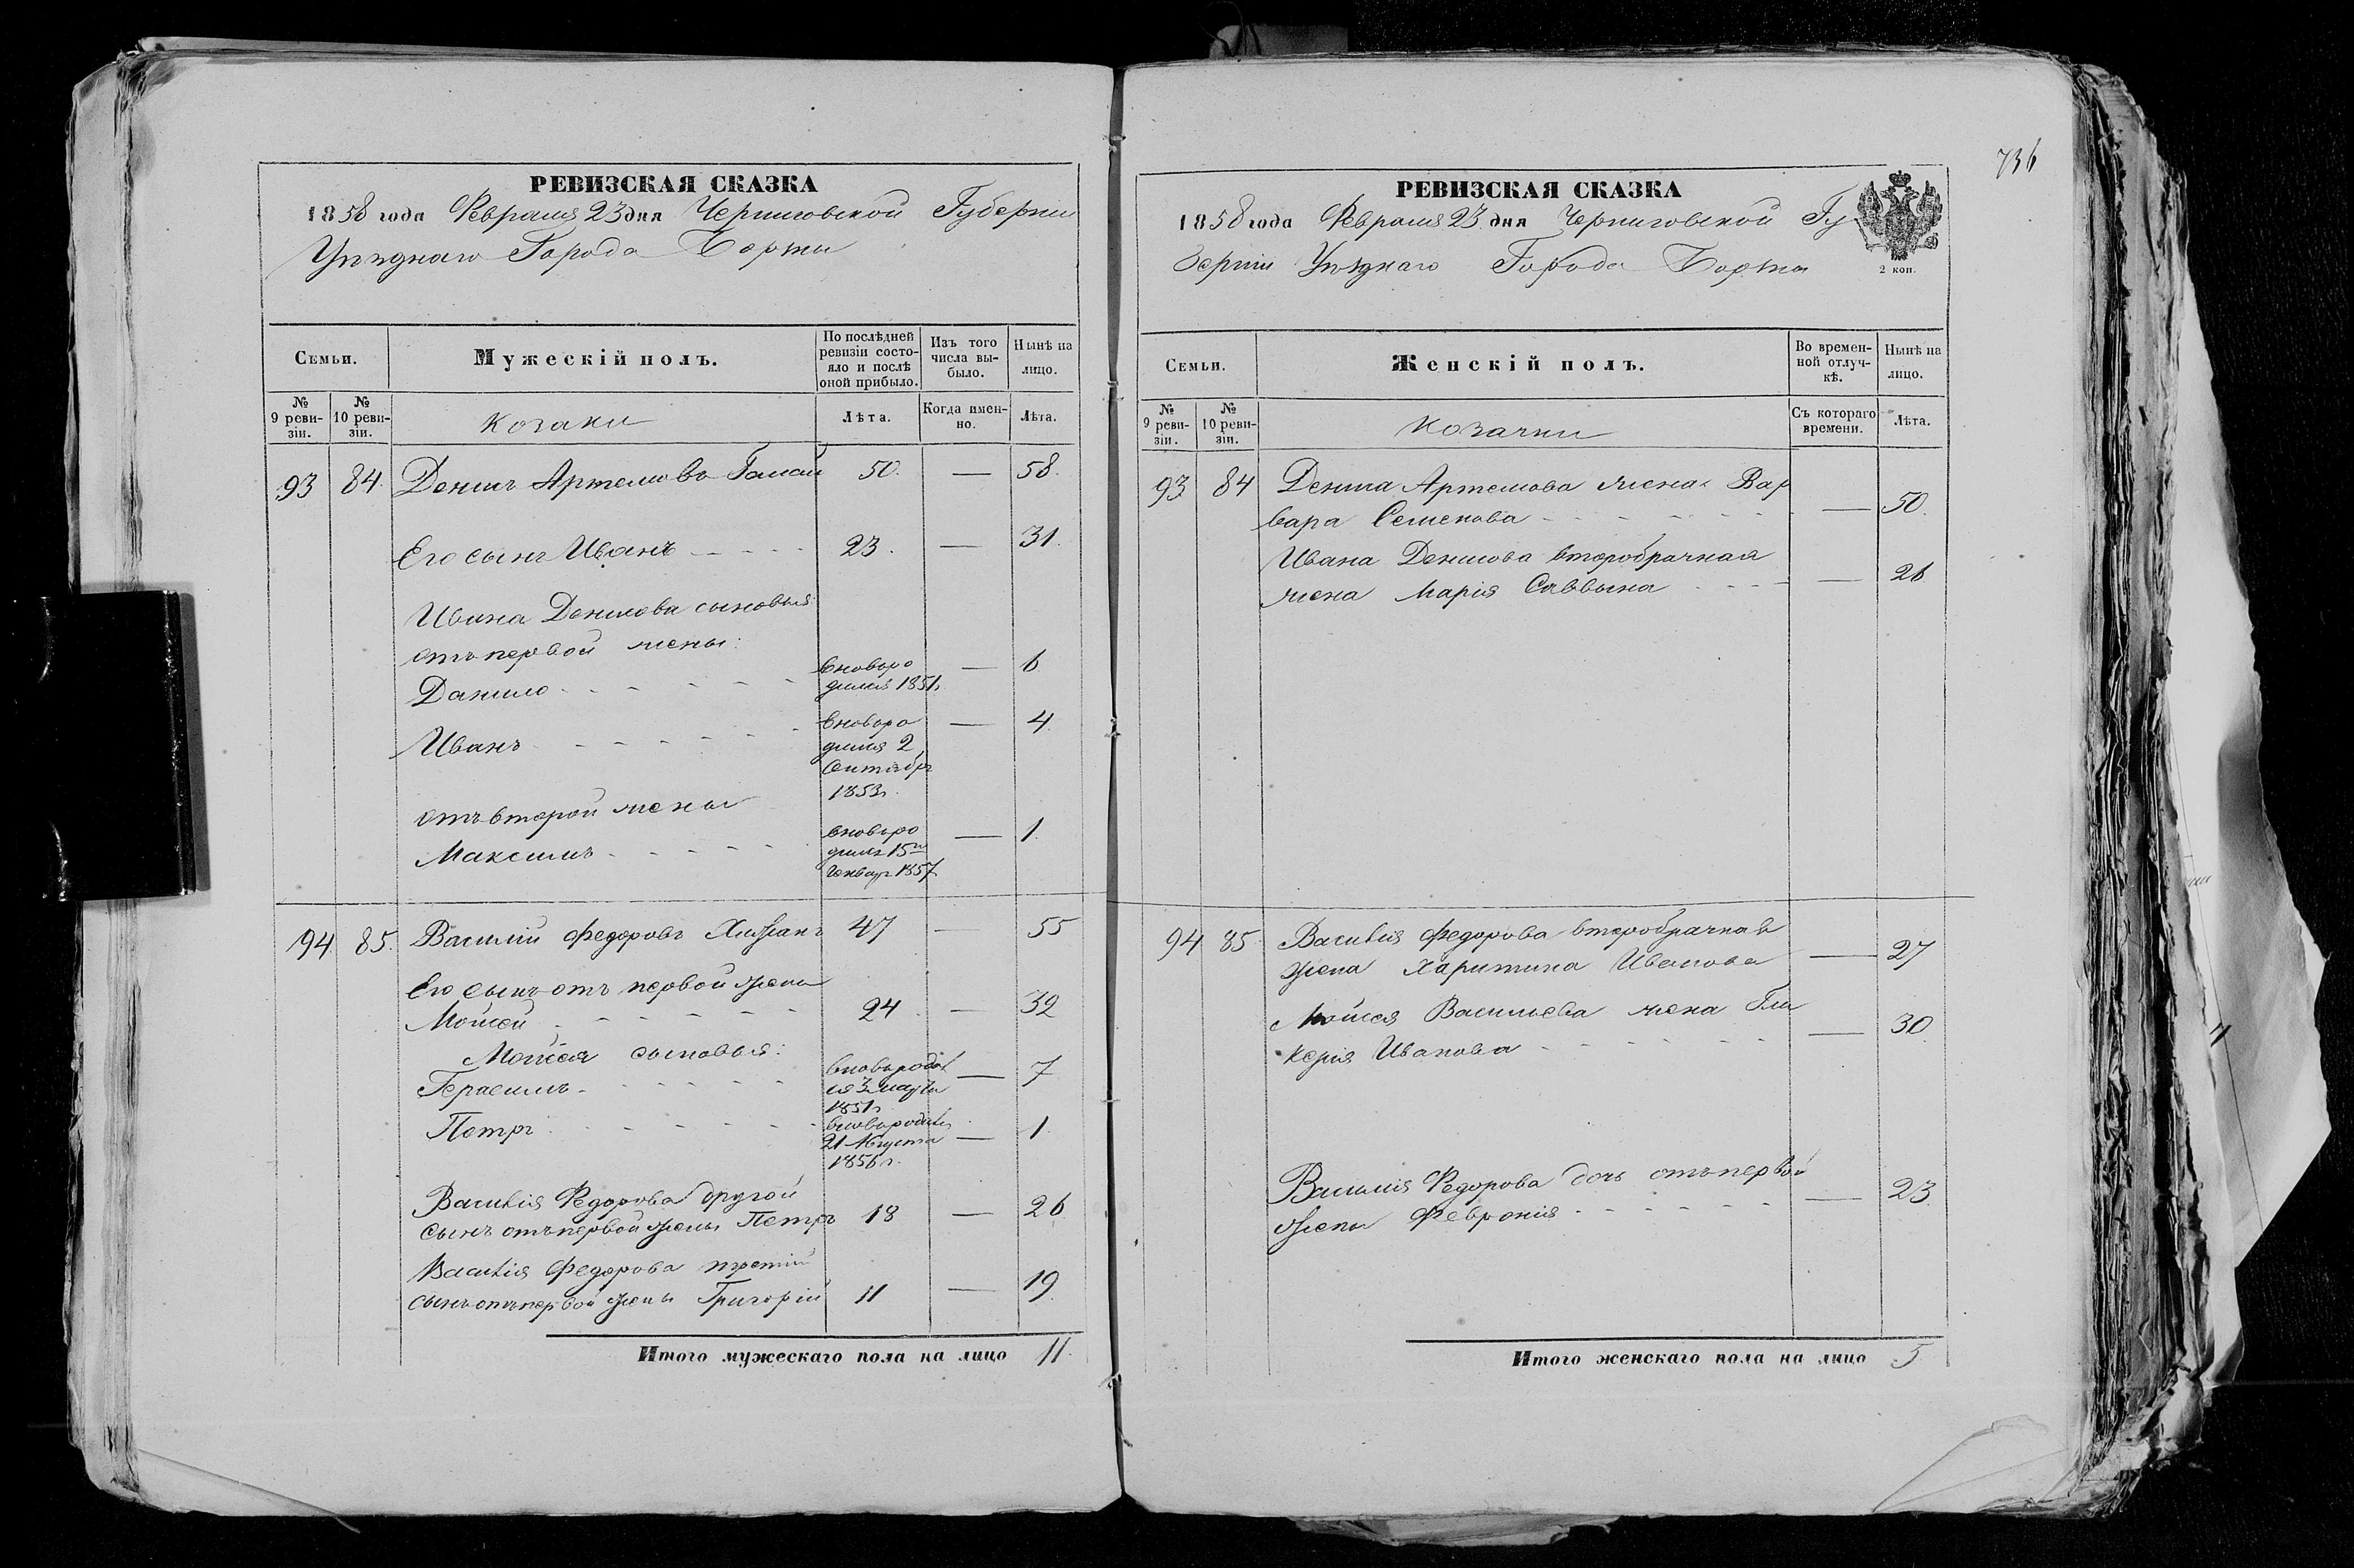 736
РЕВИЗСКАЯ СКАЗКА
1858 года Февраля 23 дня Черниговской Губерніи
Уѣзднаго Города Борзны
Семьи.
Мужескій полъ.
По послѣдней ревизіи состояло и послѣ оной прибыло.
Изъ того числа выбыло.
Нынѣ на лицо.
№ 9 ревизіи.
№ 10 ревизіи.
Козаки
Лѣта.
Когда именно.
Лѣта.
93 84. Денисъ Артемовъ 50. — 58.
Его сынъ Иванъ 23. — 31.
Ивана Денисова сыновья
отъ первой жены:
Данило вновь родился 1851г. — 6
Иванъ вновь родился 2 Сентября 1853г. — 4
отъ второй жены
Максимъ вновь родился 15го Генваря 1857 — 1.
94 85. Василій Федоровъ 47 — 55
Его сынъ отъ первой жены
Мойсей 24 — 32
Мойсея сыновья:
Герасимъ вновь родился 3 марта 1851г. — 7
Петръ вновь родился 21 Августа 1856г. — 1
Василія Федорова другой
сынъ отъ первой жены Петръ 18 — 26
Василія Федорова третій
сынъ отъ первой жены Григорій 11 — 19.
Итого мужескаго пола на лицо 11.
РЕВИЗСКАЯ СКАЗКА
1858 года Февраля 23 дня Черниговской Гу
берніи Уѣзднаго Города Борзны
2 коп.
Семьи.
Женскій полъ.
Во временной отлучкѣ.
Нынѣ на лицо.
№ 9 ревизіи.
№ 10 ревизіи.
Козачки
Съ котораго времени.
Лѣта.
93 84 Дениса Артемова жена Вар
вара Семенова — 50.
Ивана Денисова второбрачная
жена Марія Саввина — 26
94 85 Василія Федорова второбрачная
жена Харитина Иванова — 27
Мойсея Васильева жена Гли
керія Иванова — 30
Василія Федорова дочь отъ первой
жены Февронія — 23
Итого женскаго пола на лицо 5